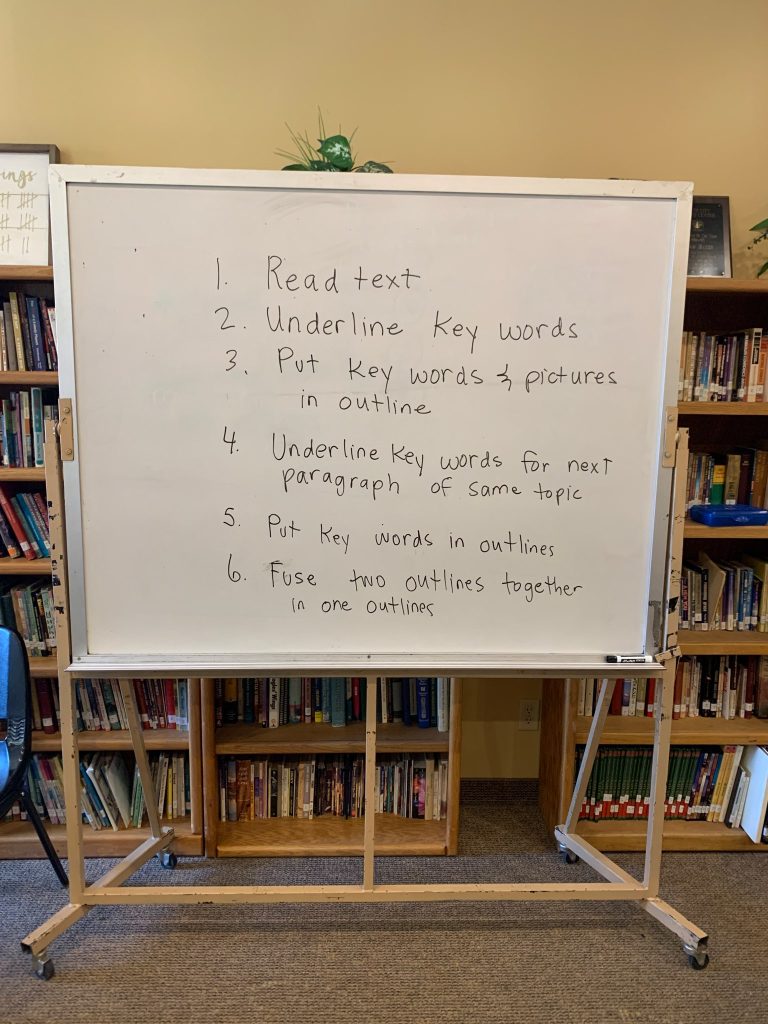 ings
1. Read text
2. Underline Key words
3. Put Key words & pictures
in outline
4. Underline Key words for next
paragraph of same topic
5. Put Key words in outlines
6. Fuse two outlines together
in one outlines